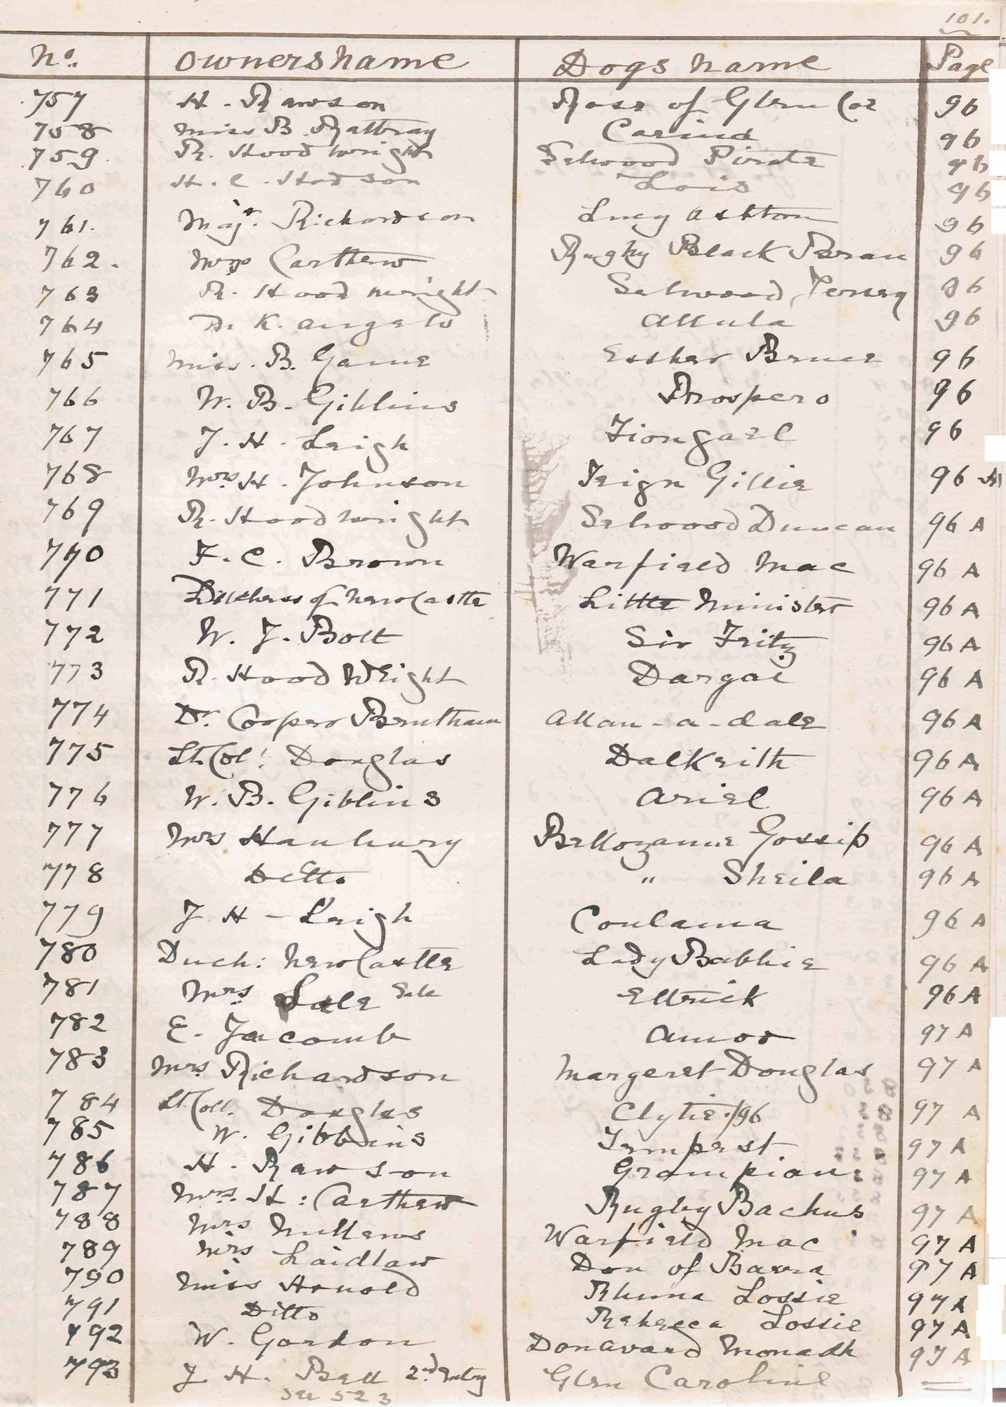 101.
No. Owners name Dogs name Page
757 H. Rawson Rose of Glen Coe 96
758 Miss B. Rattray 96
759. R. Hood Wright Selwood Pirate 96
760 H. C. Hodson Lois 96
761. Maj. Richardson Lucy Ashton 96
762. Mrs Carthew Rugby Black Bran 96
763 R. Hood Wright Selwood 96
764 D. K. Angelo 96
765 Miss. B. Garne Esther Bruce 96
766 W. B. Giblins Prospero 96
767 J. H. Leigh Fiongael 96
768 Mrs H. Johnson Teign Gillie 96 A
769 R. Hood Wright Selwood Duncan 96 A
770 F. C. Brown Warfield Mac 96 A
771 Duchess of NewCastle Little Minister 96 A
772 W. J. Bott Sir Fritz 96 A
773 R. Hood Wright Dargai 96 A
774 Dr. Cooper Allan-a-dale 96 A
775 Lt. Col. Douglas Dalkeith 96 A
776 W. B. Giblins Ariel 96 A
777 Mrs Hanbury Bellozanne Gossip 96 A
778 Ditto " Sheila 96 A
779 J H - Leigh 96 A
780 Duch: NewCastle Lady Babbie 96 A
781 Mrs Sale Ettrick 96 A
782 E. Jacomb Amor 97 A
783 Mrs Richardson Margeret Douglas 97 A
784 Lt. Coll. Douglas Clytie /96 97 A
785 W. Gibbins Tempest 97 A
786 H. Rawson Grampian: 97 A
787 Mrs. H: Carthew Rugby Bachus 97 A
788 Mrs Warfield Mac 97 A
789 Mrs Laidlaw Don of Barra 97 A
790 Miss Arnold Rhuna Lossie 97 A
791 Ditto Rebecca Lossie 97 A
792 W. Gordon Donavard Monadh 97 A
793 J. H. Bell 2nd Entry Glen Caroline
See 523